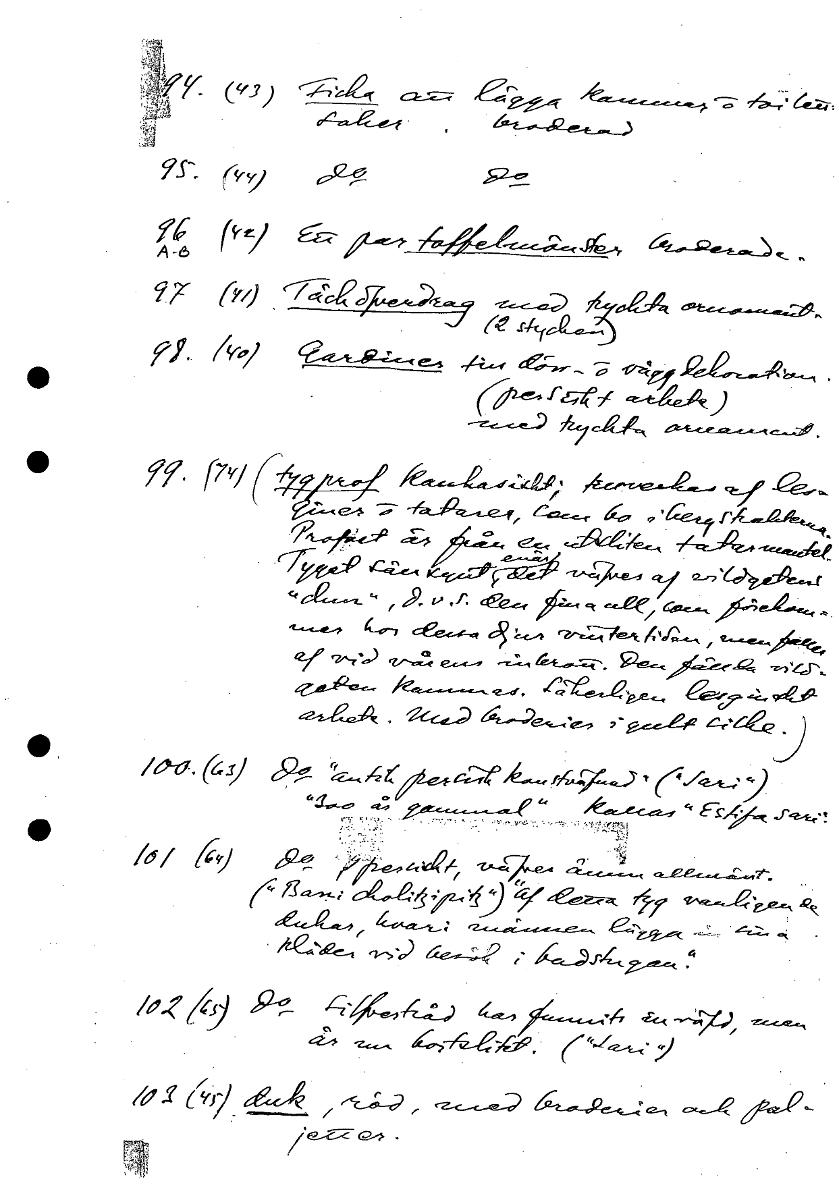 94. (43) Ficka att lägga kammar o toilett-
saker. broderad
95. (44) do do
96 (42) Ett par toffelmönster broderade.
A-B
97 (41) Täcköverdrag med tryckta ornament.
(2 stycken)
98. (40) Gardiner till dörr- o väggdekoration.
(persiskt arbete)
med tryckta ornament.
99. (74) (tygprof kaukasiskt; tillverkas af les-
giner o tatarer, som bo i bergstrakterna.
Profvet är från en utsliten tatarmantel.
Tyget sällsynt, enär
det väfves af vildgetens
"dun", d.v.s. den fina ull, som förekom-
mer hos dessa djur vintertiden, men faller
af vid vårens inbrott. Den fällda vild-
geten kammas. Säkerligen lesginskt
arbete. Med broderier i gult silke.)
100. (63) do "antik persisk konstväfnad" ("Sari")
"300 år gammal" Kallas "Estifa sari".
101 (64) do persiskt, väfves ännu allmänt.
("Bassi cholitzipitz") "af detta tyg vanligen de
dukar, hvari männen lägga sina
kläder vid besök i badstugan".
102 (65) do Silfvertråd har funnits inväfd, men
är nu bortslitet. ("Sari")
103 (45) duk, röd, med broderier och pal-
jetter.